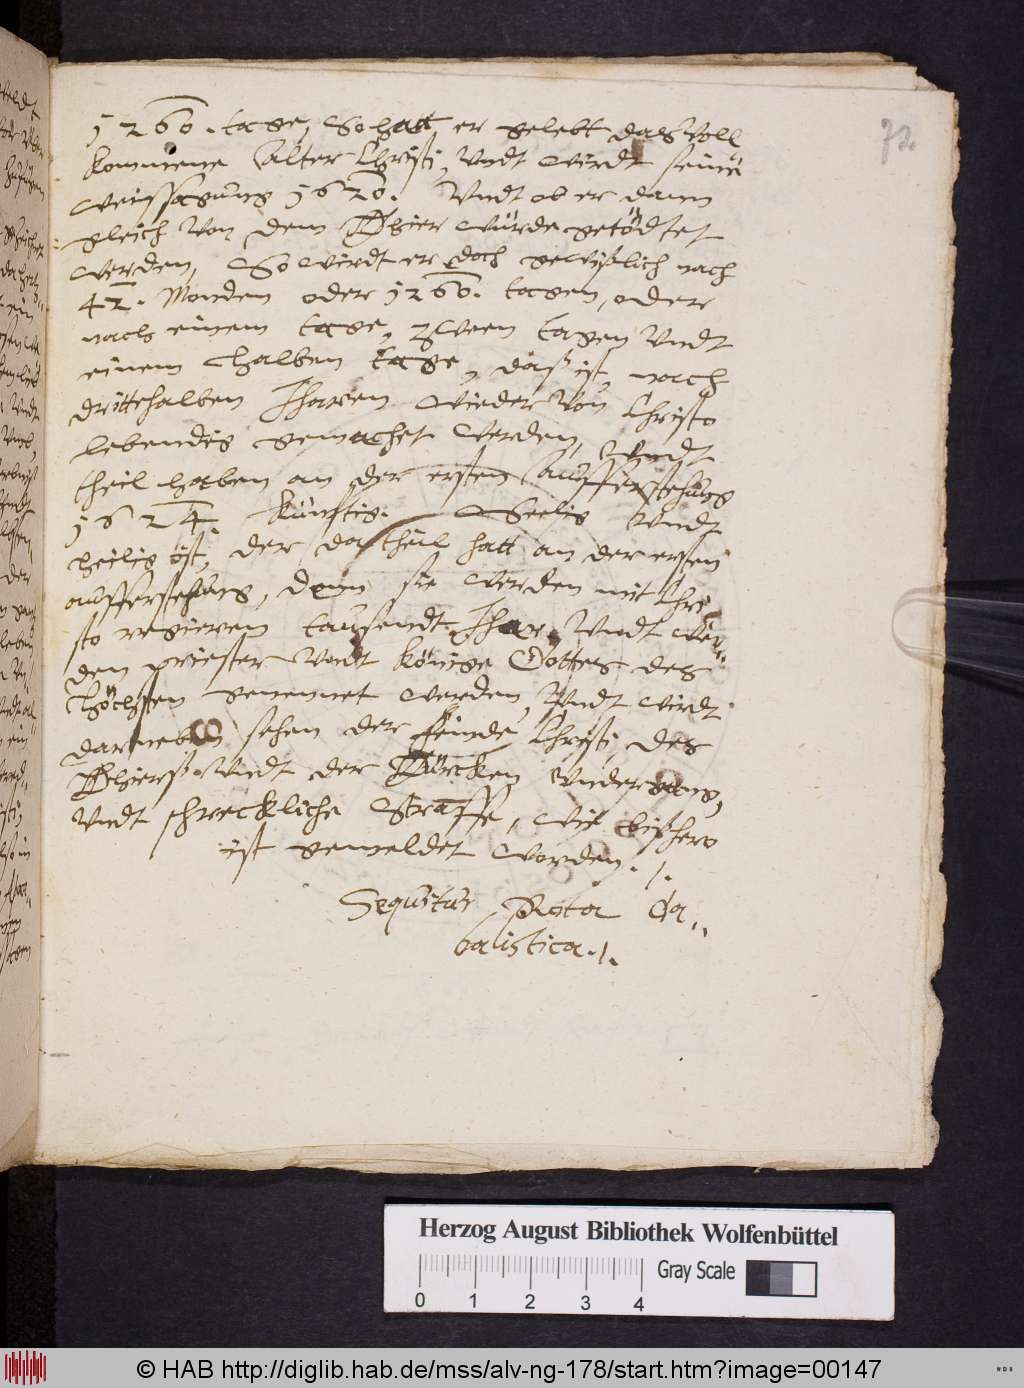 72.
1260. tage, So hatt er gelebt das Voll
kommene Alter Christi, Vndt wirdt seine
weissagung 1620. Vndt ob er dann
gleich Von dem Thier würde getödtet
werden, So wirdt er doch gewißlich nach
42. Monden oder 1260. tagen, oder
nach einem tage, zween tagen Vndt
einem halben tage, daß ist, nach
drittehalben Jharen wieder Von Christo
lebendig gemachet werden, Vndt
theil haben an der ersten Aufferstehung
1624 künftig. Seelig Vndt
heilig ist, der da theil hatt an der ersten
aufferstehung, denn sie werden mit Chri
sto regieren tausendt Jhar, Vndt wer-
den priester Vndt könige Gottes des
Höchsten genennet werden, Vndt wirdt
darneben sehen der feinde Christi, des
Thierß Vndt der Türcken Vndergang,
Vndt schreckliche Straffe, wie bißhero
ist gemeldet worden. /.
Sequitur Rota Ca-
balistica. /.
Herzog August Bibliothek Wolfenbüttel
Gray Scale
0 1 2 3 4
© HAB http://diglib.hab.de/mss/alv-ng-178/start.htm?image=00147